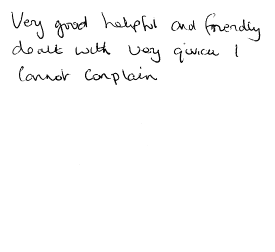 Very good helpful and friendly
dealt with very quick I
cannot complain